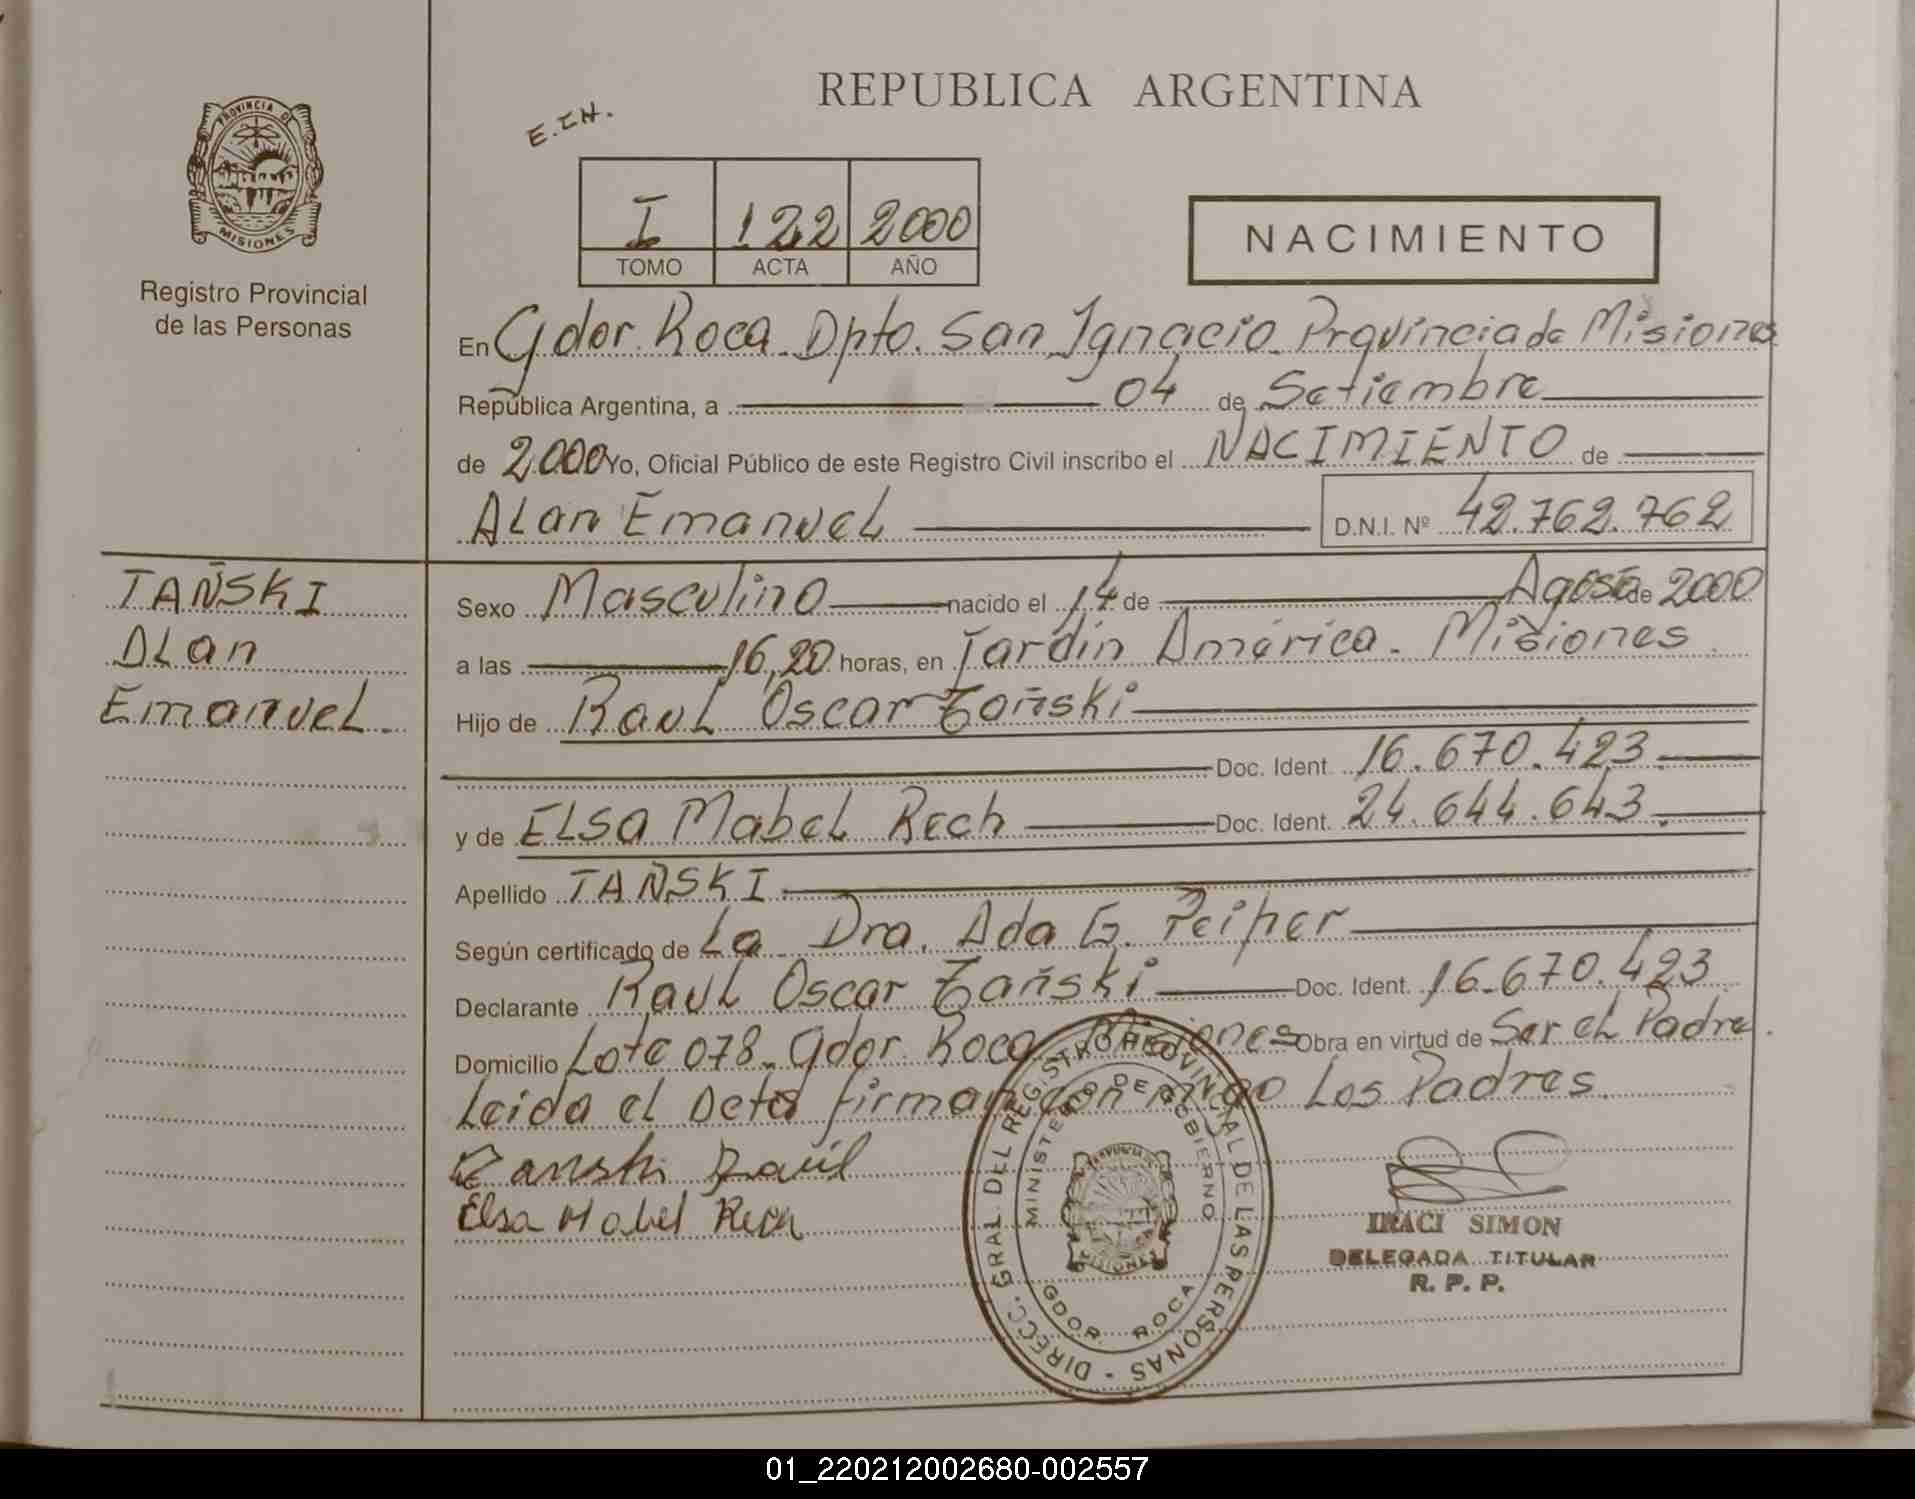 REPUBLICA ARGENTINA
E.CH.
PROVINCIA DE
MISIONES
Registro Provincial
de las Personas
I 122 2000
TOMO ACTA AÑO
NACIMIENTO
En Gdor. Roca. Dpto. San Ignacio. Provincia de Misiones
República Argentina, a 04 de Setiembre
de 2000 Yo, Oficial Público de este Registro Civil inscribo el NACIMIENTO de
Alan Emanuel D.N.I. Nº 42.762.762
TAÑSKI
Alan
Emanuel.
Sexo Masculino nacido el 14 de Agosto de 2000
a las 16,20 horas, en Jardín América. Misiones.
Hijo de Raul Oscar Tañski
Doc. Ident. 16.670.423.
y de Elsa Mabel Rech Doc. Ident. 24.644.643.
Apellido TAÑSKI.
Según certificado de La Dra. Ada G. Peiper
Declarante Raul Oscar Tañski Doc. Ident. 16.670.423
Domicilio Lote 078. Gdor. Roca. Misiones Obra en virtud de Ser el Padre.
Leida el Acta firman conmigo Los Padres.
Zanski Raúl
Elsa Mabel Rech
DIRECC. GRAL. DEL REGISTRO PROVINCIAL DE LAS PERSONAS -
MINISTERIO DE GOBIERNO
GDOR. ROCA
MISIONES
IRACI SIMON
DELEGADA TITULAR
R. P. P.
01_220212002680-002557